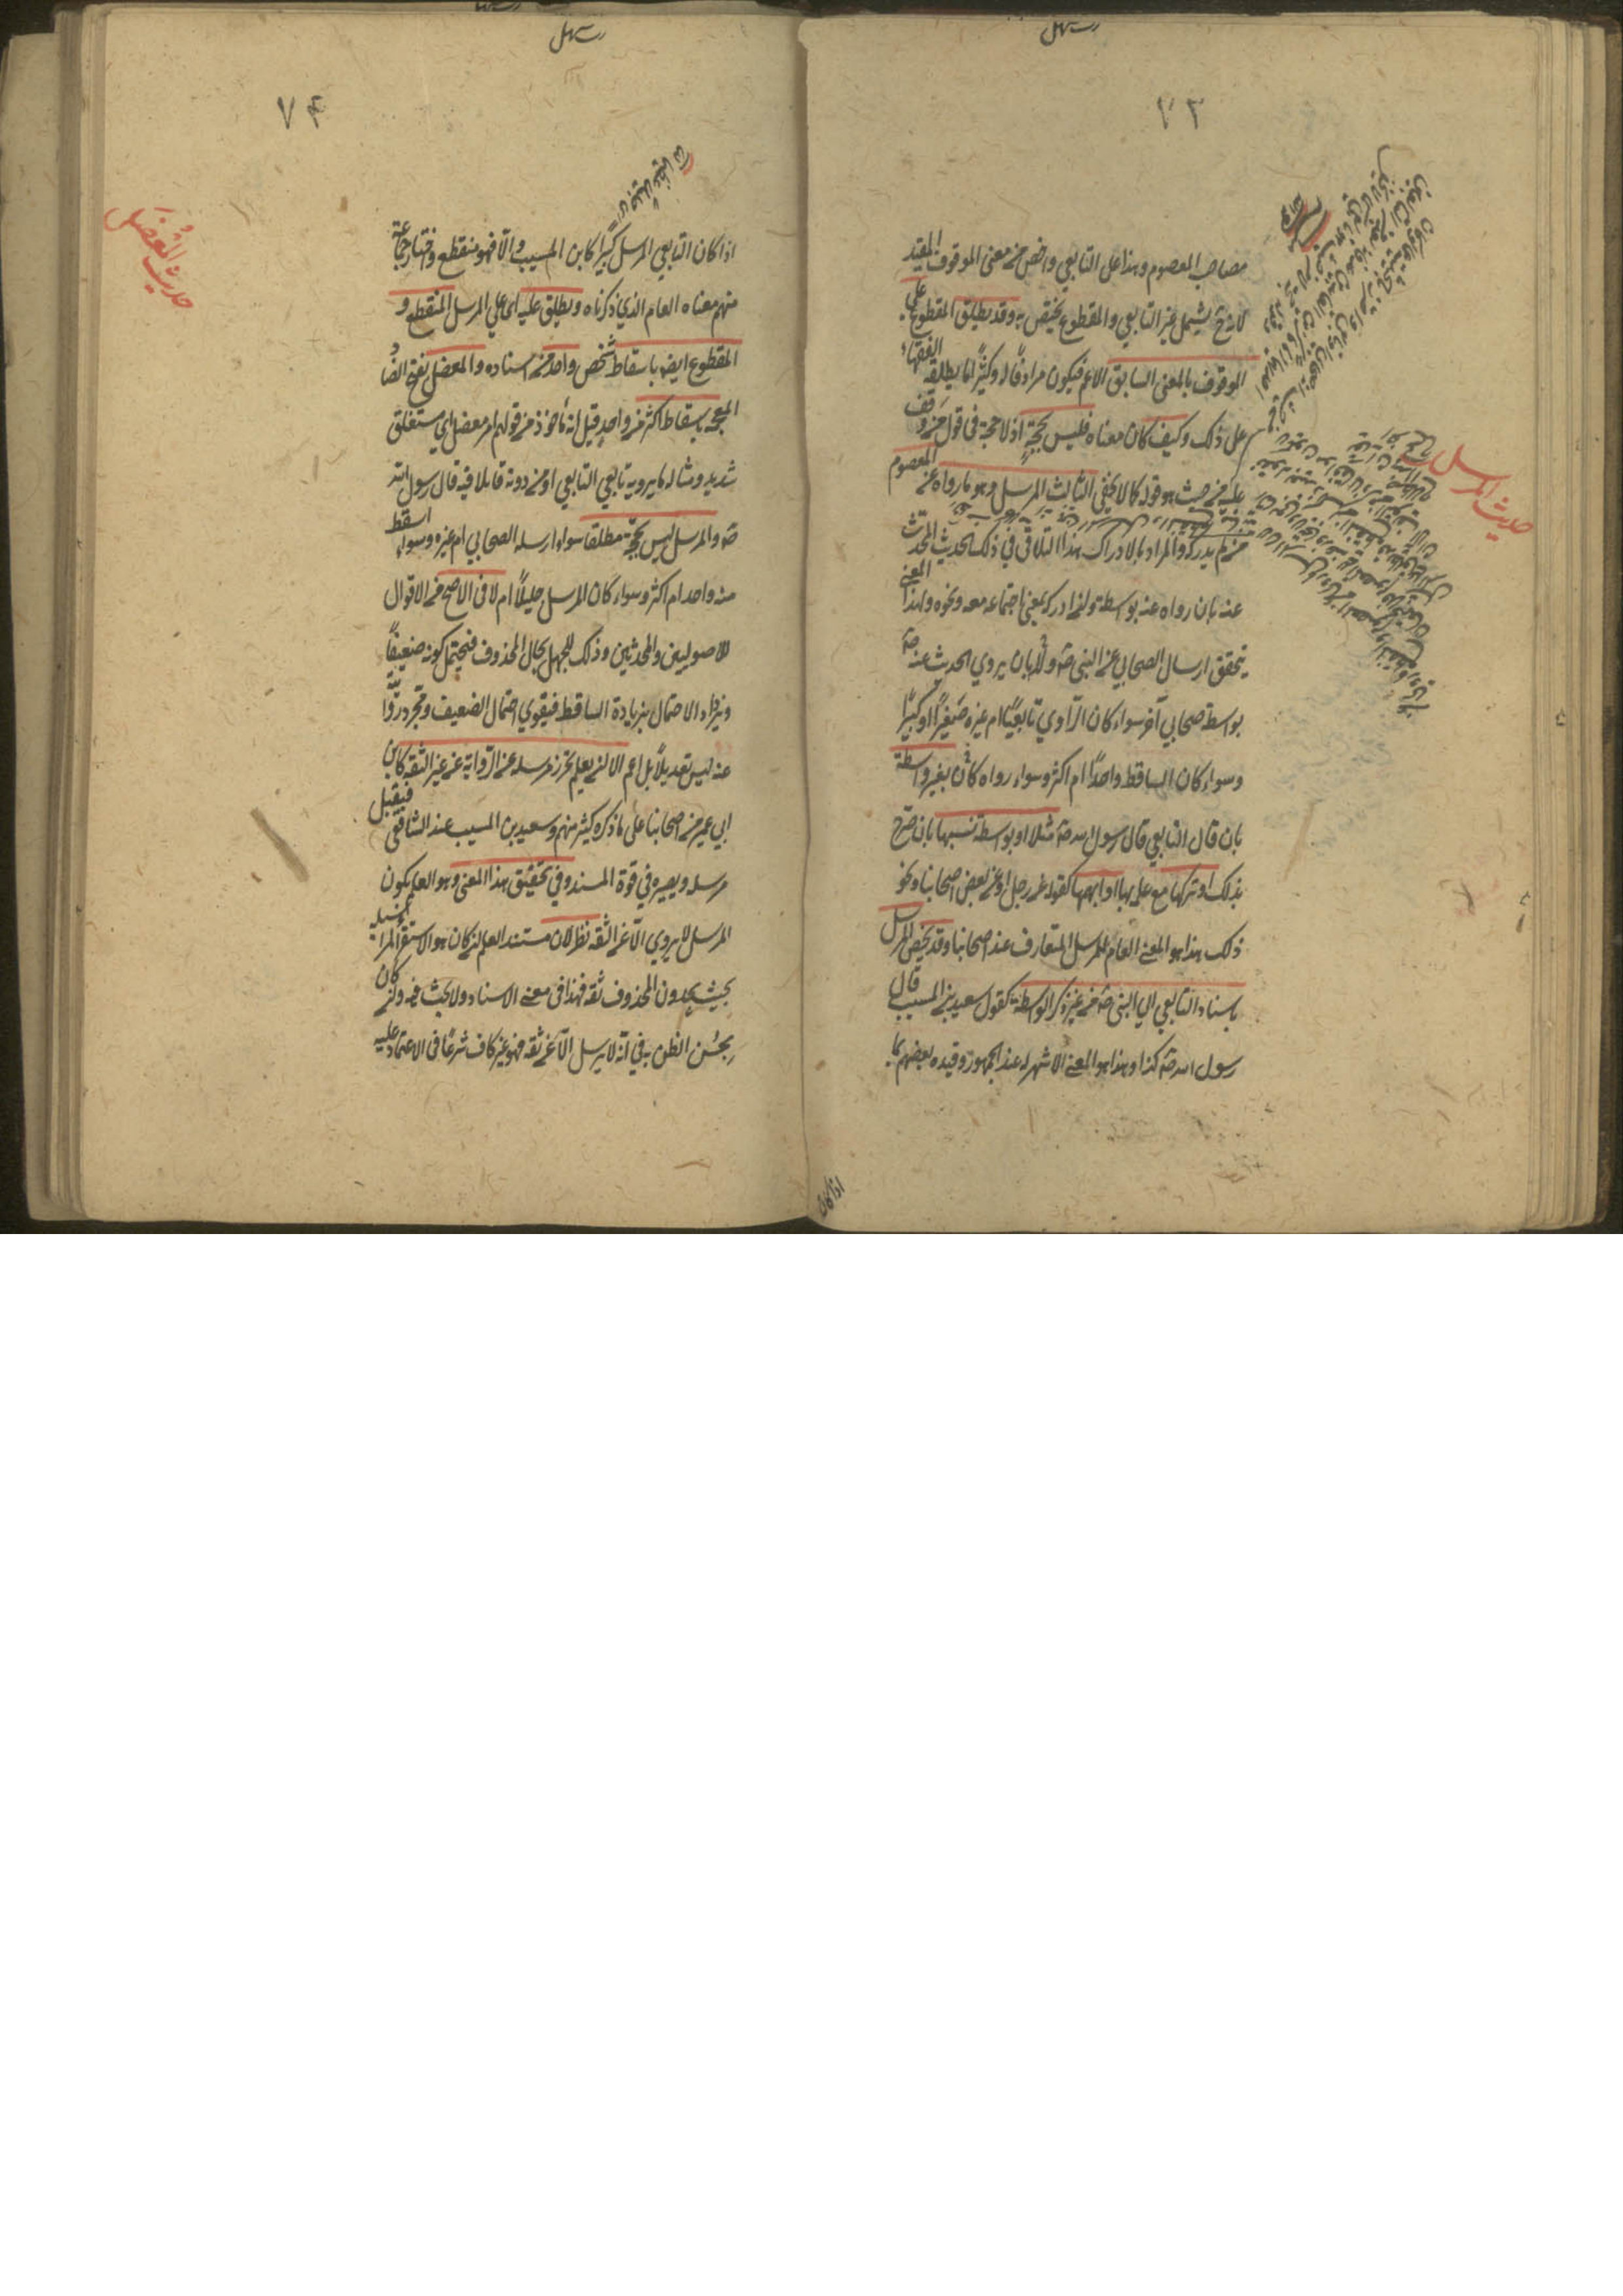 ٧٣
مصاحب المعصوم وهذا على التابعي واخص من معنى الموقوف المقيد
لانه ح يشمل غير التابعي والمقطوع يختص به وقد يطلق المقطوع على
الموقوف بالمعنى السابق الاعم فيكون مرادفا له وكثيرًا ما يطلقه الفقهاء
على ذلك وكيف كان معناه فليس بحجةٍ اذ لا حجة فى قول من وقف
عليه من حيث هو قوله كما لا يخفى الثالث المرسل وهو ما رواه عن المعصوم
من لم يدركه والمراد بالادراك هنا التلاقى فى ذلك الحديث المحدث
عنه بان رواه عنه بواسطة وان ادركه بمعنى اجتماعه معه ونحوه وبهذا المعنى
يتحقق ارسال الصحابي عن النبى صه بان يروي الحديث عنه صه
بواسطة صحابي آخر سواء كان الراوي تابعيًا ام غيره صغيرًا او كبيرًا
وسواء كان الساقط واحدًا ام اكثر وسواء رواه بغير واسطة
بان قال التابعي قال رسول الله صه مثلا او بواسطة نسيها بان صرح
بذلك او تركها مع علمه بها او ابهمها كقوله عن رجل او عن بعض اصحابنا ونحو
ذلك هذا هو المعنى العام للمرسل المتعارف عند اصحابنا وقد يخص المرسل
باسناد التابعي الي النبى صه من غير ذكر الواسطة كقول سعيد بن المسيب قال
رسول الله صه كذا وهذا هو المعنى الاشهر له عند الجمهور وقيده بعضهم بما
اذا كان
حديث المرسل
٧٤
اذا كان التابعي المرسل كبيرًا كابن المسيب والا فهو منقطع واختار جماعة
منهم معناه العام الذي ذكرناه ويطلق عليه اى على المرسل المنقطع و
المقطوع ايضه باسقاط شخص واحد من اسناده والمعضل بفتح الضاد
المعجمه باسقاط اكثر من واحد قيل انه مأخوذ من قولهم امر معضل اي مستغلق
شديد ومثاله ما يرويه تابعي التابعي او من دونه قائلا فيه قال رسول الله
صه والمرسل ليس بحجّة مطلقا سواء ارسله الصحابي ام غيره وسواء اسقط
منه واحد ام اكثر وسواء كان المرسل جليلًا ام لا فى الاصح من الاقوال
للاصوليين والمحدثين وذلك للجهل بحال المحذوف فيحتمل كونه ضعيفًا
ويزداد الاحتمال بزيادة الساقط فيقوي احتمال الضعيف ومجرد روّايته
عنه ليس تعديلًا بل اعم الا ان يعلم تحرز مرسله عن الرواية عن غير الثقه كابن
ابي عمير من اصحابنا على ما ذكره كثير منهم وسعيد بن المسيب عند الشافعى فيقبل
مرسله ويصير في قوة المسند وفي تحقيق هذا المعنى وهو العلم بكون
المرسل لا يروي الا عن الثقه نظر لان مستند العلم ان كان هو الاستقراء لمراسيله
بحيث يجدون المحذوف ثقه فهذا فى معنى الاسناد ولا بحث فيه وان كان
بحسن الظن به في انّه لا يرسل الا عن ثقه فهو غير كاف شرعًا فى الاعتماد عليه
حديث المُعْضَل